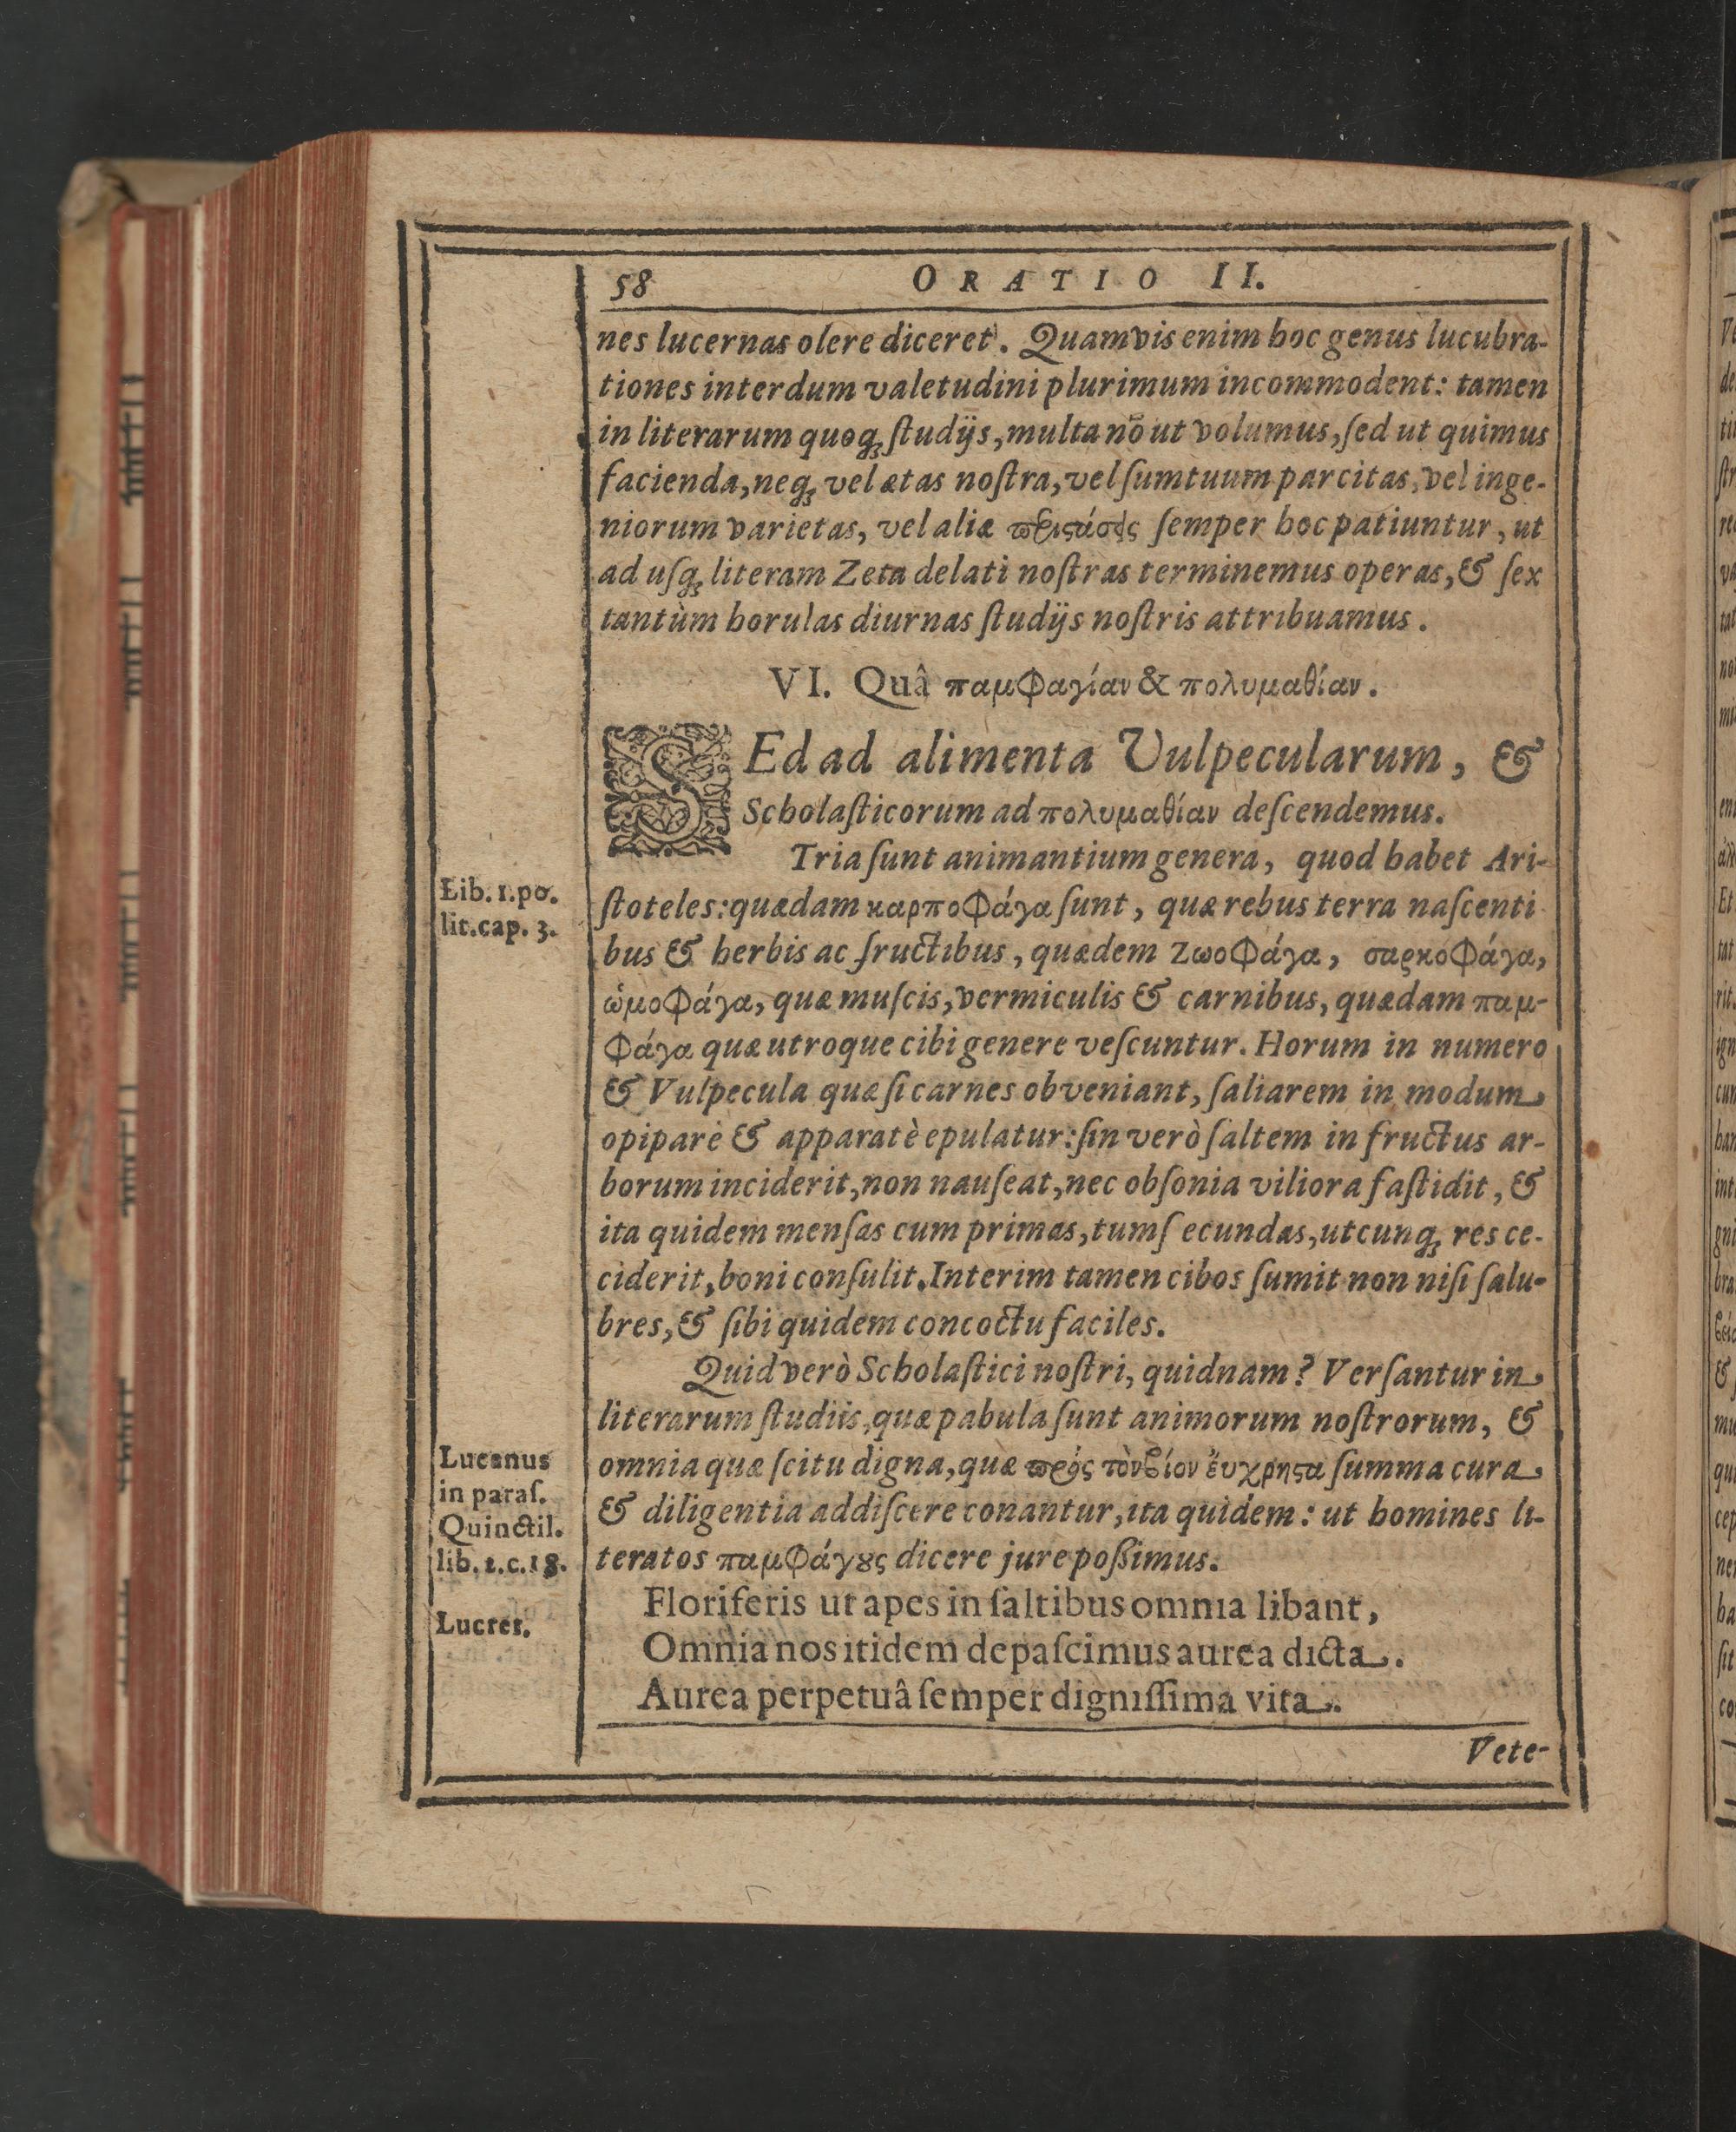 58 ORATIO II.
nes lucernas olere diceret. Quamvis enim hoc genus lucubra-
tiones interdum valetudini plurimum incommodent: tamen
in literarum quoq; ſtudijs, multa nõ ut volumus, ſed ut quimus
facienda, neq; vel ætas noſtra, vel ſumtuum parcitas, vel inge-
niorum varietas, vel aliæ περιςάσεις ſemper hoc patiuntur, ut
ad uſq; literam Zeta delati noſtras terminemus operas, & ſex
tantùm horulas diurnas ſtudijs noſtris attribuamus.
VI. Quâ παμφαγίαν & πολυμαθίαν.
SEd ad alimenta Vulpecularum, &
Scholaſticorum ad πολυμαθίαν deſcendemus.
Tria ſunt animantium genera, quod habet Ari-
Lib. 1. po.
lit. cap. 3.
ſtoteles: quædam καρποφάγα ſunt, quæ rebus terra naſcenti
bus & herbis ac fructibus, quædem ζωοφάγα, σαρκοφάγα,
ὠμοφάγα, quæ muſcis, vermiculis & carnibus, quædam παμ-
φάγα quæ utroque cibi genere veſcuntur. Horum in numero
& Vulpecula quæ ſi carnes obveniant, ſaliarem in modum
opiparè & apparatè epulatur: ſin verò ſaltem in fructus ar-
borum inciderit, non nauſeat, nec obſonia viliora faſtidit, &
ita quidem menſas cum primas, tum ſecundas, utcunq; res ce-
ciderit, boni conſulit. Interim tamen cibos ſumit non niſi ſalu-
bres, & ſibi quidem concoctu faciles.
Quid verò Scholaſtici noſtri, quidnam? Verſantur in
literarum ſtudiis, quæ pabula ſunt animorum noſtrorum, &
Lucanus
in paraſ.
Quinctil.
lib. 1. c. 18.
omnia quæ ſcitu digna, quæ πρὸς τὸν βίον ἔυχρηςα ſumma cura
& diligentia addiſcere conantur, ita quidem: ut homines li-
teratos παμφάγȣς dicere jure poßimus.
Lucret.
Floriferis ut apes in ſaltibus omnia libant,
Omnia nos itidem depaſcimus aurea dicta.
Aurea perpetuâ ſemper digniſſima vita.
Vete-